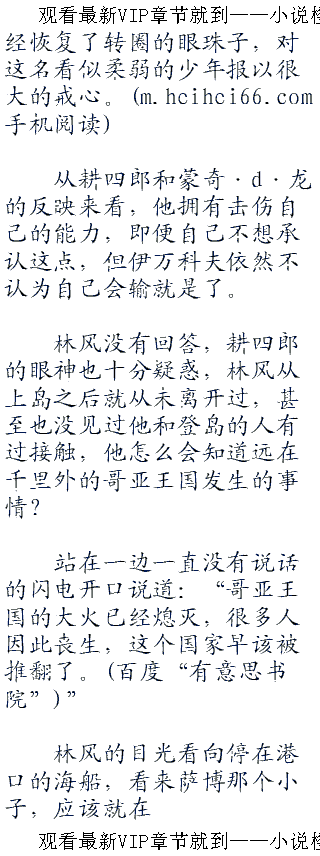 观看最新VIP章节就到——小说
经恢复了转圈的眼珠子，对
这名看似柔弱的少年报以很
大的戒心。(m.hcihci66.com
手机阅读)
从耕四郎和蒙奇·d·龙
的反映来看，他拥有击伤自
己的能力，即便自己不想承
认这点，但伊万科夫依然不
认为自己会输就是了。
林风没有回答，耕四郎
的眼神也十分疑惑，林风从
上岛之后就从未离开过，甚
至也没见过他和登岛的人有
过接触，他怎么会知道远在
千里外的哥亚王国发生的事
情？
站在一边一直没有说话
的闪电开口说道：“哥亚王
国的大火已经熄灭，很多人
因此丧生，这个国家早该被
推翻了。(百度“有意思书
院”)”
林风的目光看向停在港
口的海船，看来萨博那个小
子，应该就在
观看最新VIP章节就到——小说